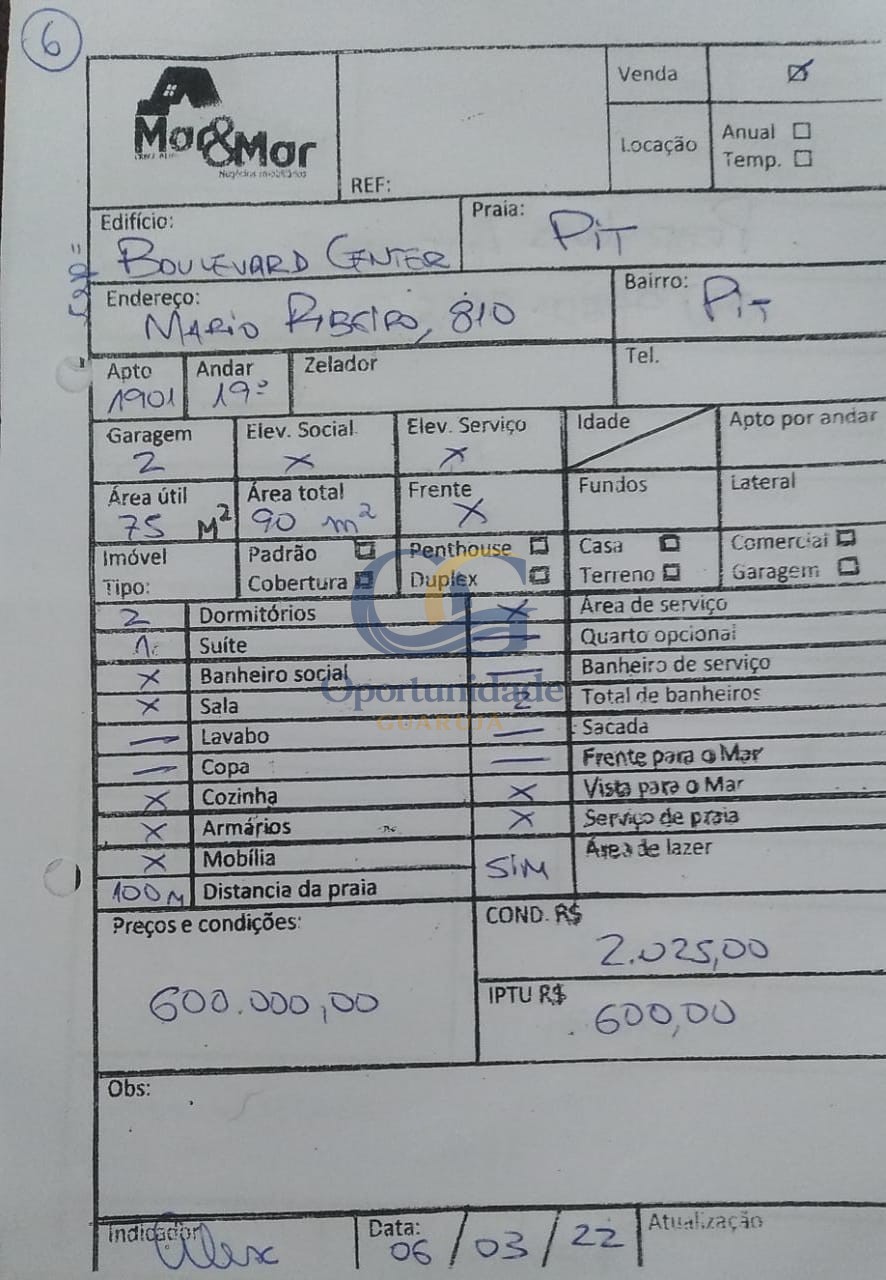 6
Mar&Mar
Negócios Imobiliários
REF:
Venda
Locação
Anual
Temp.
Edifício:
BOULEVARD CENTER
Praia:
PIT
Endereço:
MARIO RIBEIRO, 810
Bairro:
PIT
Apto
1901
Andar
19º
Zelador
Tel.
Garagem
2
Elev. Social
X
Elev. Serviço
X
Idade
Apto por andar
Área útil
75 M²
Área total
90 m²
Frente
X
Fundos
Lateral
Imóvel
Tipo:
Padrão
Cobertura
Penthouse
Duplex
Casa
Terreno
Comercial
Garagem
2 Dormitórios X Área de serviço
1 Suíte — Quarto opcional
X Banheiro social — Banheiro de serviço
X Sala 2 Total de banheiros
— Lavabo — Sacada
— Copa — Frente para o Mar
X Cozinha X Vista para o Mar
X Armários X Serviço de praia
X Mobília SIM Área de lazer
100 M Distancia da praia
Oportunidade
GUARUJÁ
Preços e condições:
600.000,00
COND. R$
2.025,00
IPTU R$
600,00
Obs:
Indicador
Alex
Data:
06/03/22
Atualização